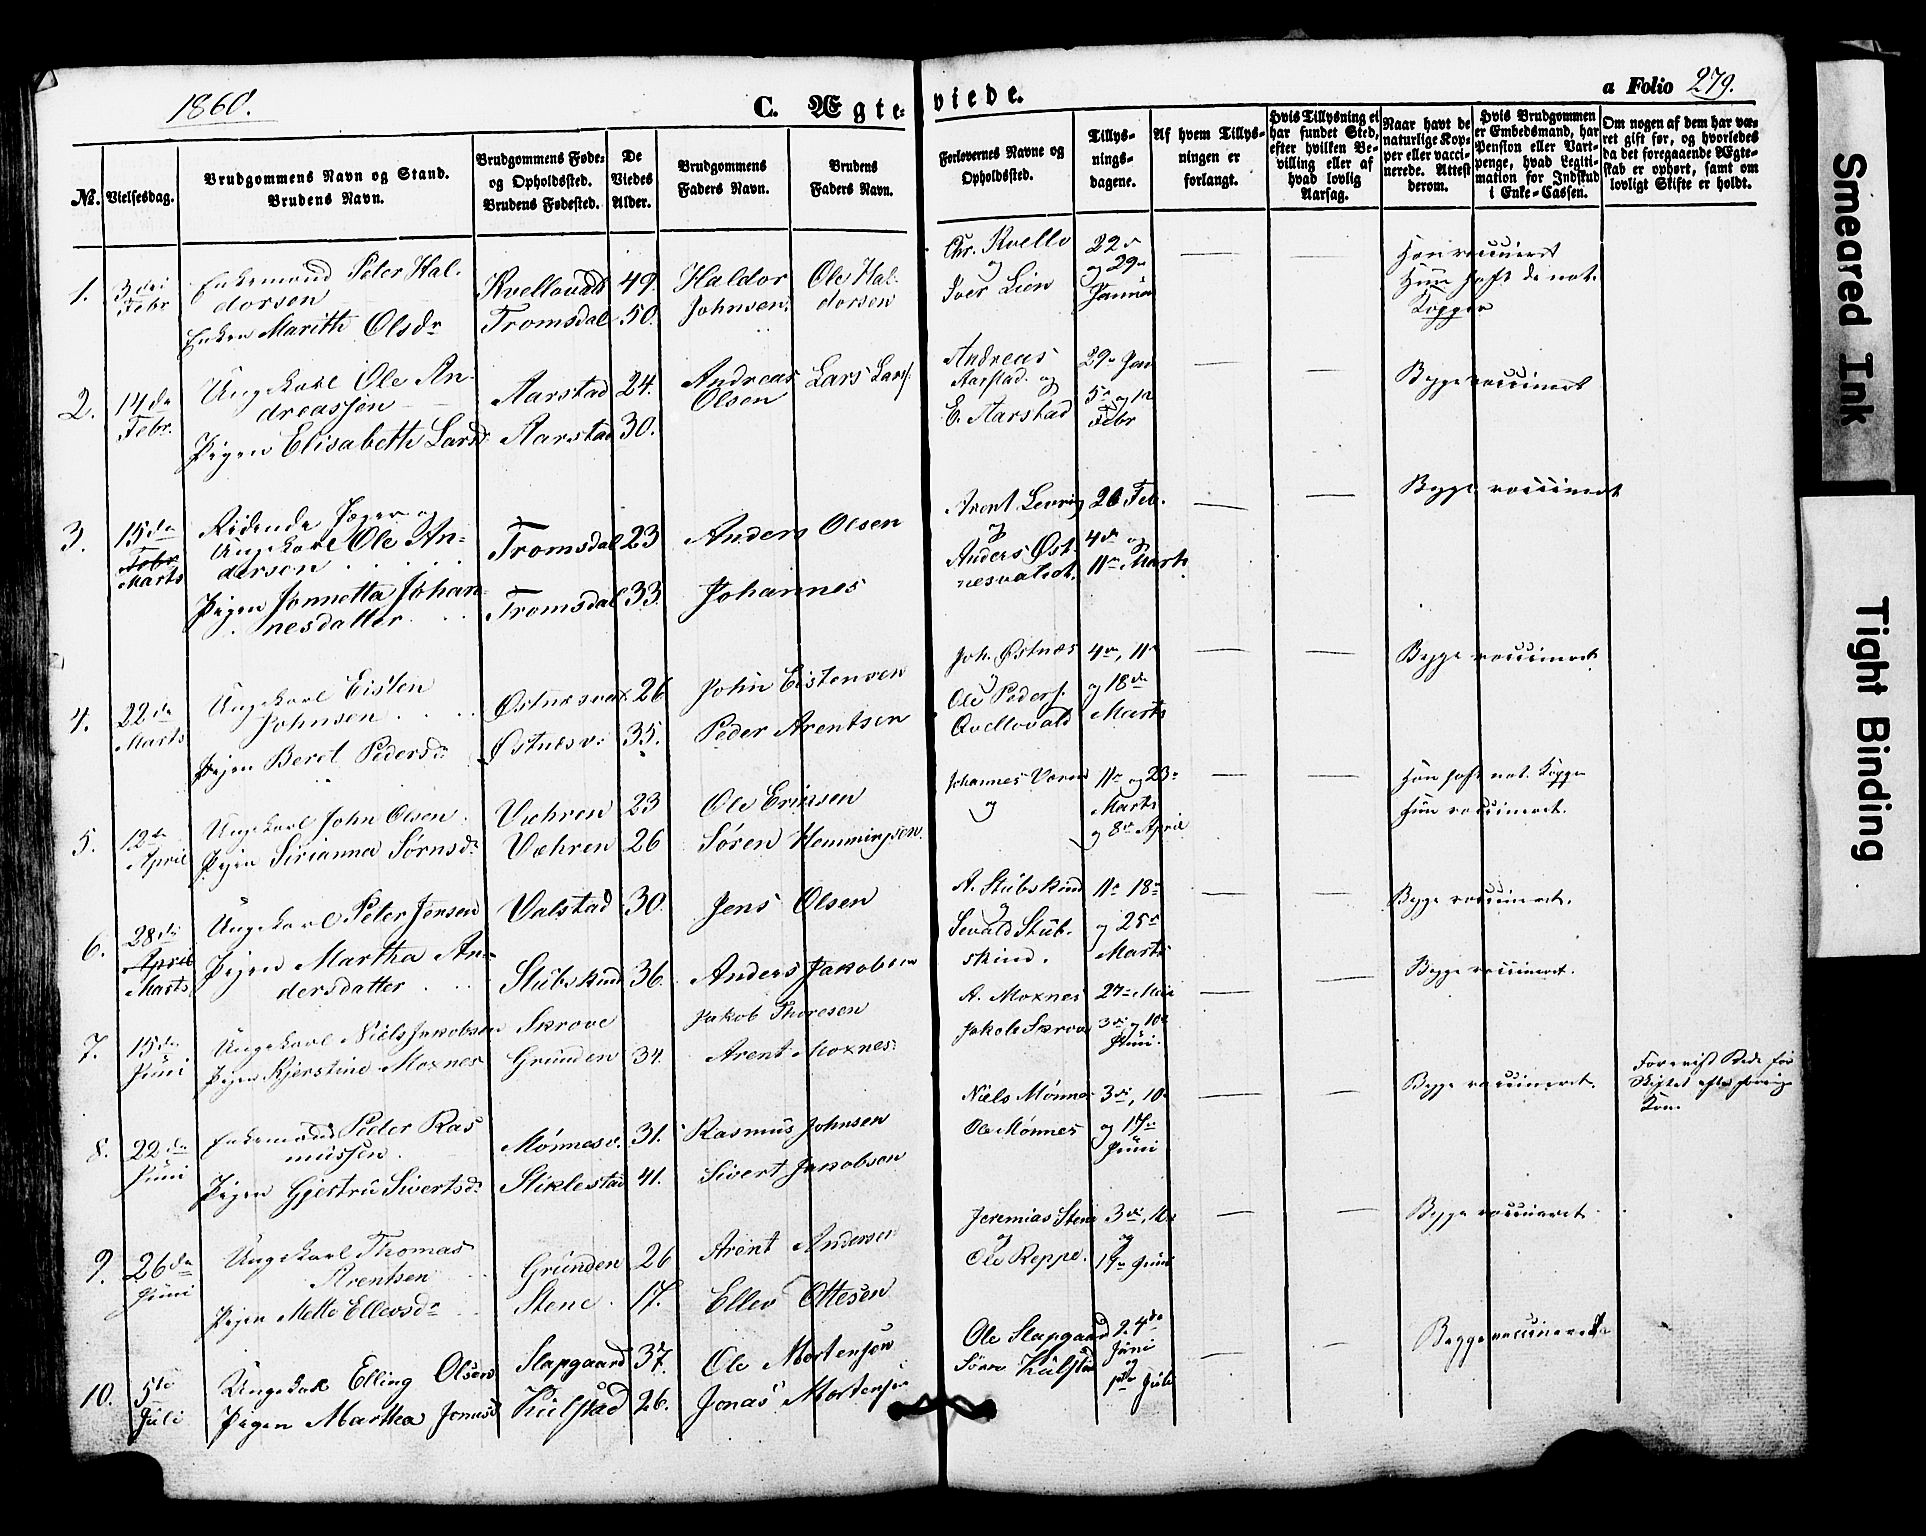 1860.
C. Ægteviede.
a Folio 279.
№.
Vielsesdag.
Brudgommens Navn og Stand.
Brudens Navn.
Brudgommens Føde-
og Opholdssted.
Brudens Fødested.
De
Viedes
Alder.
Brudgommens
Faders Navn.
Brudens
Faders Navn.
Forlovernes Navne og
Opholdssted.
Tillys-
nings-
dagene.
Af hvem Tillys-
ningen er
forlangt.
Hvis Tillysning ei
har fundet Sted,
efter hvilken Be-
villing eller af
hvad lovlig
Aarsag.
Naar havt de
naturlige Kop-
per eller vacci-
nerede. Attest
derom.
Hvis Brudgommen
er Embedsmand, har
Pension eller Vart-
penge, hvad Legiti-
mation for Indskud
i Enke-Cassen.
Om nogen af dem har væ-
ret gift før, og hvorledes
da det foregaaende Ægte-
skab er ophørt, samt om
lovligt Skifte er holdt.
1.
Febr
Enkemand Peter Hal-
dorsen
Enken Marith Olsdr
Kvellovald 49.
Tromsdal 50.
Haldor
Johnsen.
Ole Hal-
dorsen
Chr. Kvello
og
Iver Lien
22de
og 29de
Januar
Han vaccineret
Hun haft de nat.
Kopper
2.
14de
Febr.
Ungekarl Ole An-
dreassen
Pigen Elisabeth Larsd.
Aarstad 24.
Aarstad 30.
Andreas
Olsen
Lars Lars.
Andreas
Aarstad og
E. Aarstad
29de Jan
5te og 12
Febr
Begge vaccineret
3.
15de
Febr
Marts
Ridende Jæger og
Ungekarl Ole An-
dersen
Pigen Jonnetta Johan-
nesdatter
Tromsdal 23
Tromsdal 33.
Anders Olsen
Johannes
Arent
og
Anders Øst-
nesvald.
26 Feb.
4de og
11te Marts
Begge vaccineret
4.
22de
Marts
Ungekarl Eisten
Johnsen
Pigen Beret Pedersd.
26
Østnesv. 35.
John Eistensen
Peder Arentsen
Joh. Østnæs
og
Ole Peders.
Qvellovald
4de, 11te
og 18de
Marts
Begge vaccineret
5.
12te
April
Ungekarl John Olsen
Pigen Sirianna Sørnsd.
Væhren 23
Væhren 26
Ole Eriksen
Søren Hemmingsen.
Johannes
og
11te og 23de
Marts
og 8de April
Han haft nat. Kopper
Hun vaccineret.
6.
28de
April
Marts
Ungekarl Peter Jensen
Pigen Martha An-
dersdatter
Valstad 30.
Stubskind 36.
Jens Olsen
Anders Jakobsen
A. Stubskind
og
Sevald Stub-
skind.
11te 18de
og 25de
Marts
Begge vaccineret.
7.
15de
Juni
Ungekarl Niels Jakobsen
Pigen Kjerstine Moxnes
Skrove
Grunden 34.
Jakob Thoresen
Arent Moxnes
A. Moxnes
Jakob Skrove
27de Mai
3die og 10de
Juni.
Begge vaccineret.
8.
22de
Juni
Enkemand Peder Ras-
mussen
Pigen Gjertru Sivertsd.
Mønnesv. 31.
Stiklestad 41.
Rasmus Johnsen
Sivert Jakobsen
Niels Mønnes
Ole Mønnes
3die, 10de
og 17de
Juni
Begge vaccineret.
Forevist
Skiftet efter
9.
26de
Juni
Ungekarl Thomas
Arentsen
Pigen Mette Ellevsdr
Grunden 26
Stene 17.
Arent Andersen
Ellev Ottesen
Jeremias Stene
og
Ole Reppe.
3die, 10de
og
17de Juni
Begge vaccineret.
10.
5te
Juli
Ungekarl Elling Olsen
Pigen Marthea Jonasd.
Slapgaard 37.
Kulstad 26.
Ole Mortensen
Jonas Mortensen
Ole Slapgaard
Sören Kulstad
24de
Juni
og
1ste Juli
Begge vaccinerede
Smeared Ink
Tight Binding